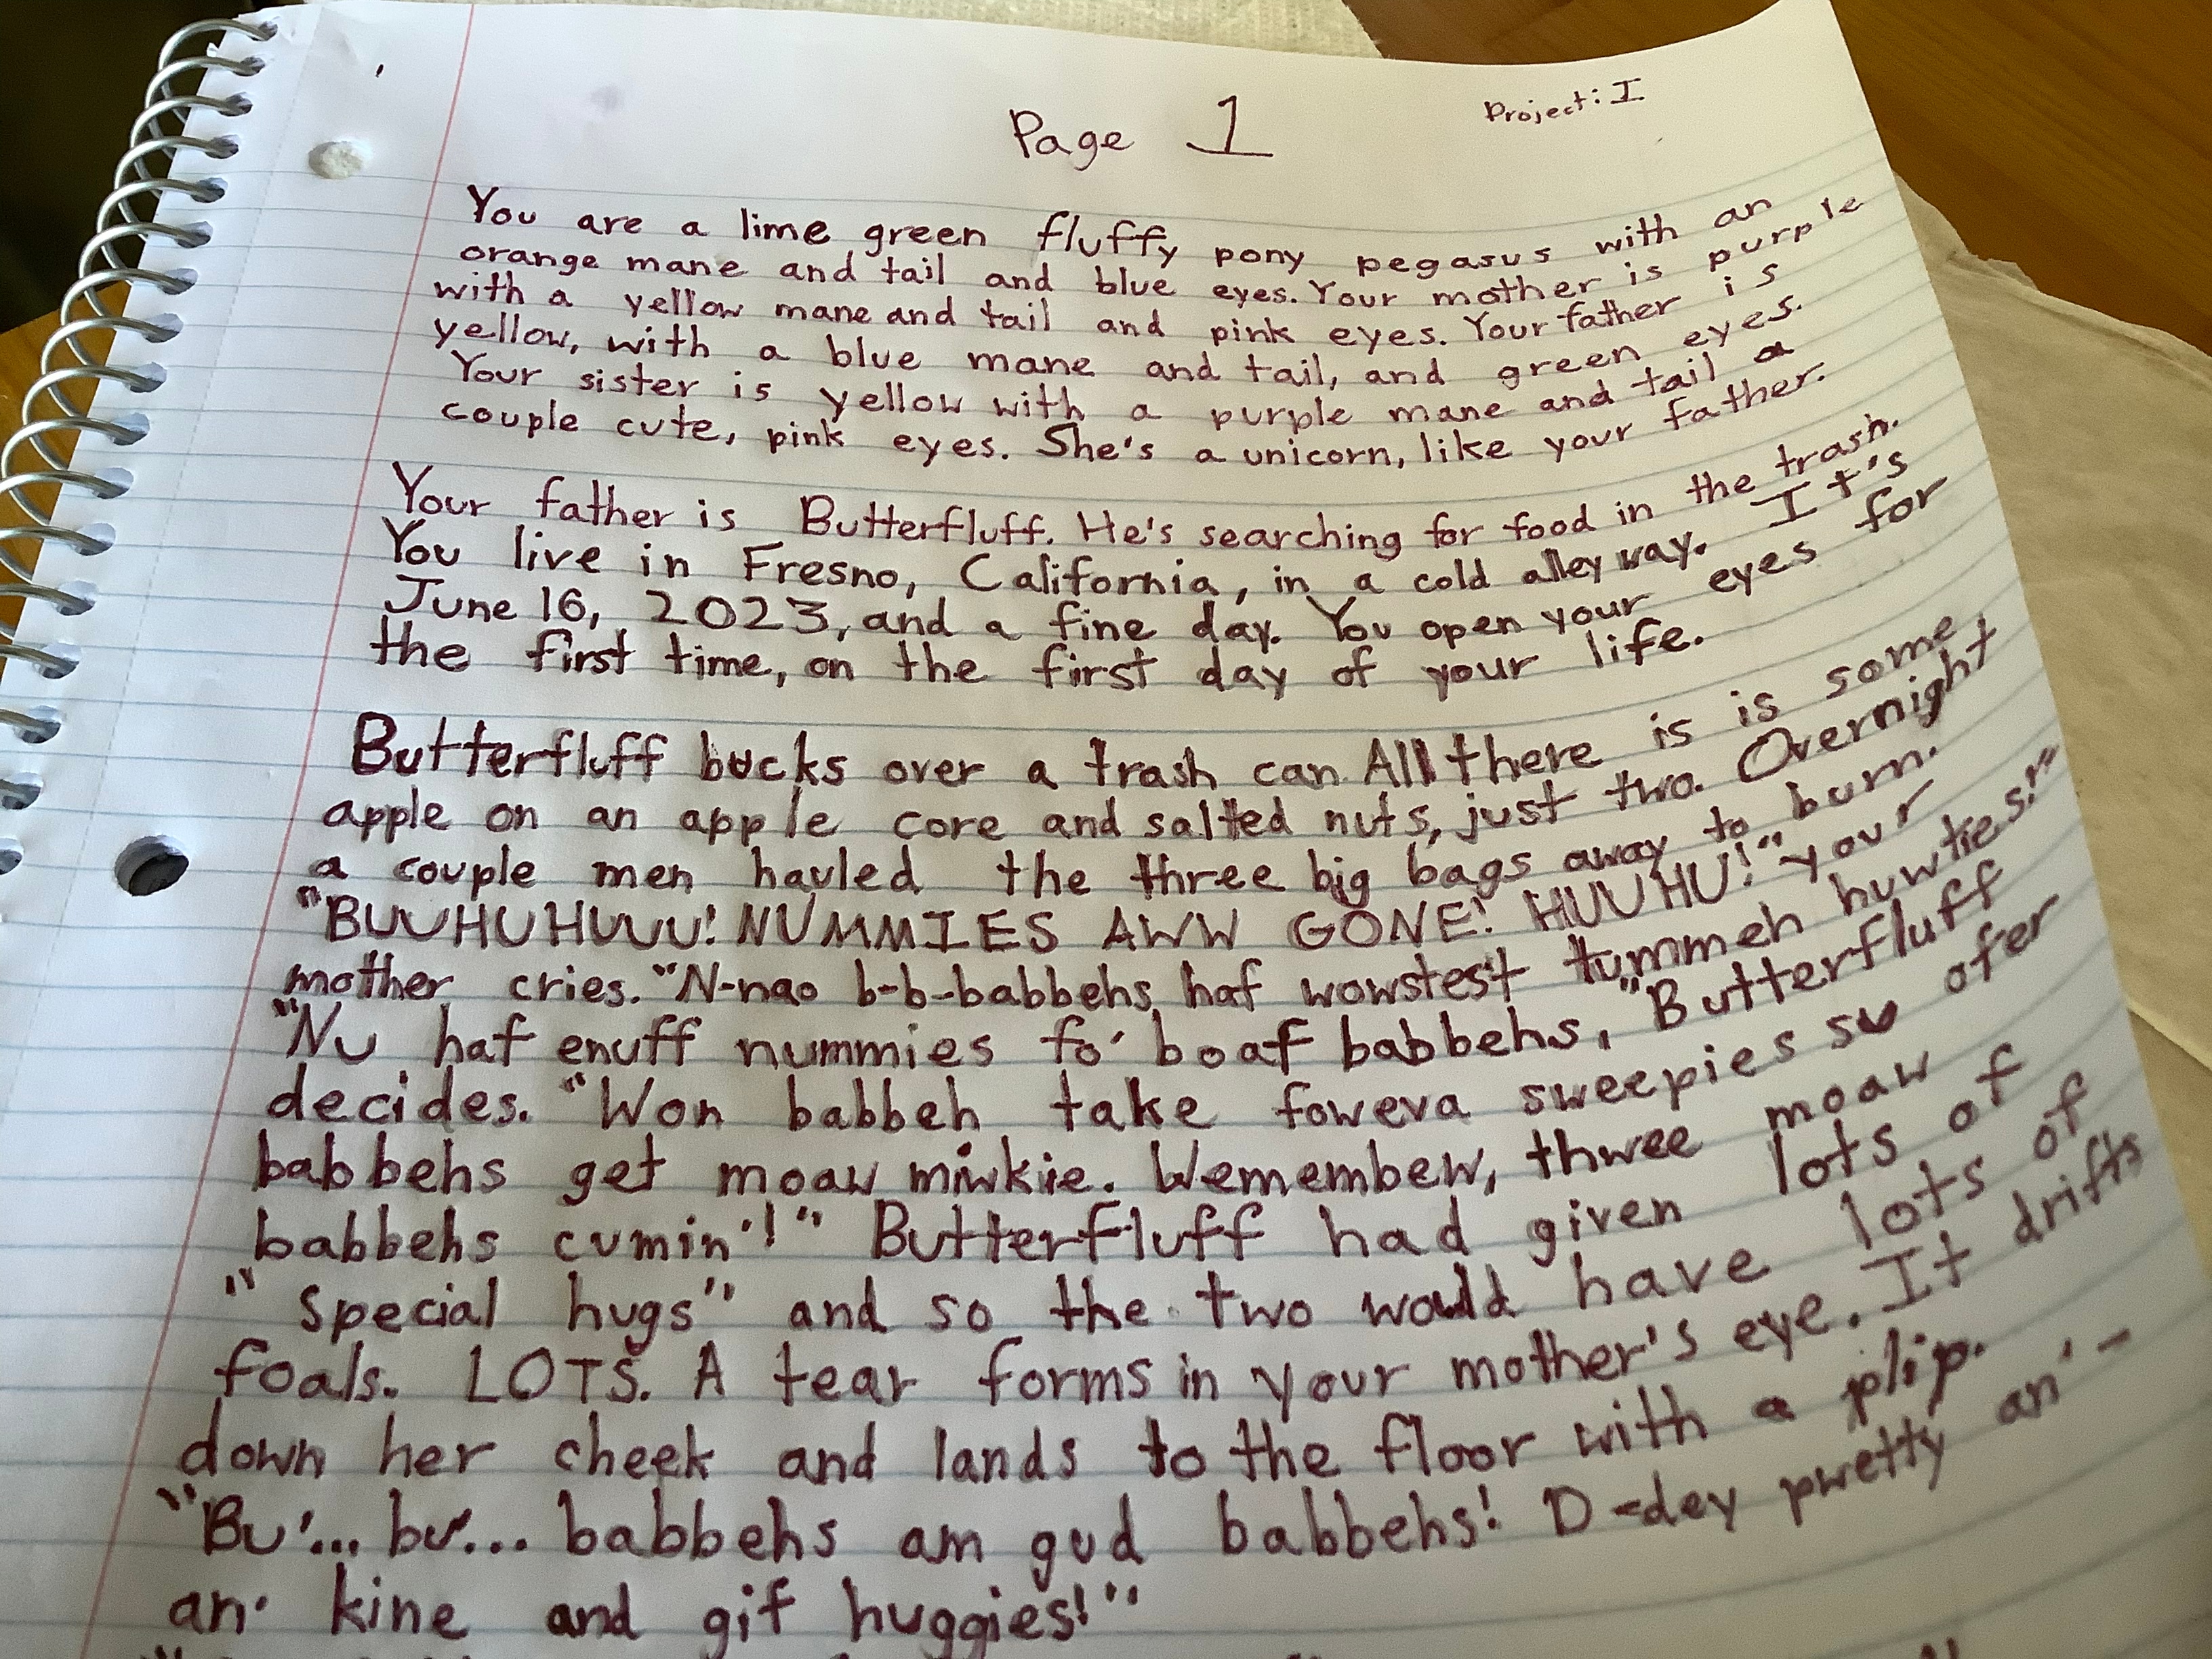 Page 1
Project: I
You are a lime green fluffy pony pegasus with an
orange mane and tail and blue eyes. Your mother is purple
with a yellow mane and tail and pink eyes. Your father is
yellow, with a blue mane and tail, and green eyes.
Your sister is yellow with a purple mane and tail a
couple cute, pink eyes. She's a unicorn, like your father.
Your father is Butterfluff. He's searching for food in the trash.
You live in Fresno, California, in a cold alleyway. It's
June 16, 2023, and a fine day. You open your eyes for
the first time, on the first day of your life.
Butterfluff bucks over a trash can. All there is is some
apple on an apple core and salted nuts, just two. Overnight
a couple men hauled the three big bags away to burn.
"BUUHUHUUU! NUMMIES AWW GONE! HUUHU!" your
mother cries. "N-nao b-b-babbehs haf wowstest tummeh huwties!"
"Nu haf enuff nummies fo' boaf babbehs," Butterfluff
decides. "Won babbeh take foweva sweepies su ofer
babbehs get moaw miwkie. Wemembew, thwee moaw
babbehs cumin'!" Butterfluff had given lots of
"special hugs" and so the two would have lots of
foals. LOTS. A tear forms in your mother's eye. It drifts
down her cheek and lands to the floor with a plip.
"Bu'... bu'... babbehs am gud babbehs! D-dey pwetty an'-
an' kine and gif huggies!"